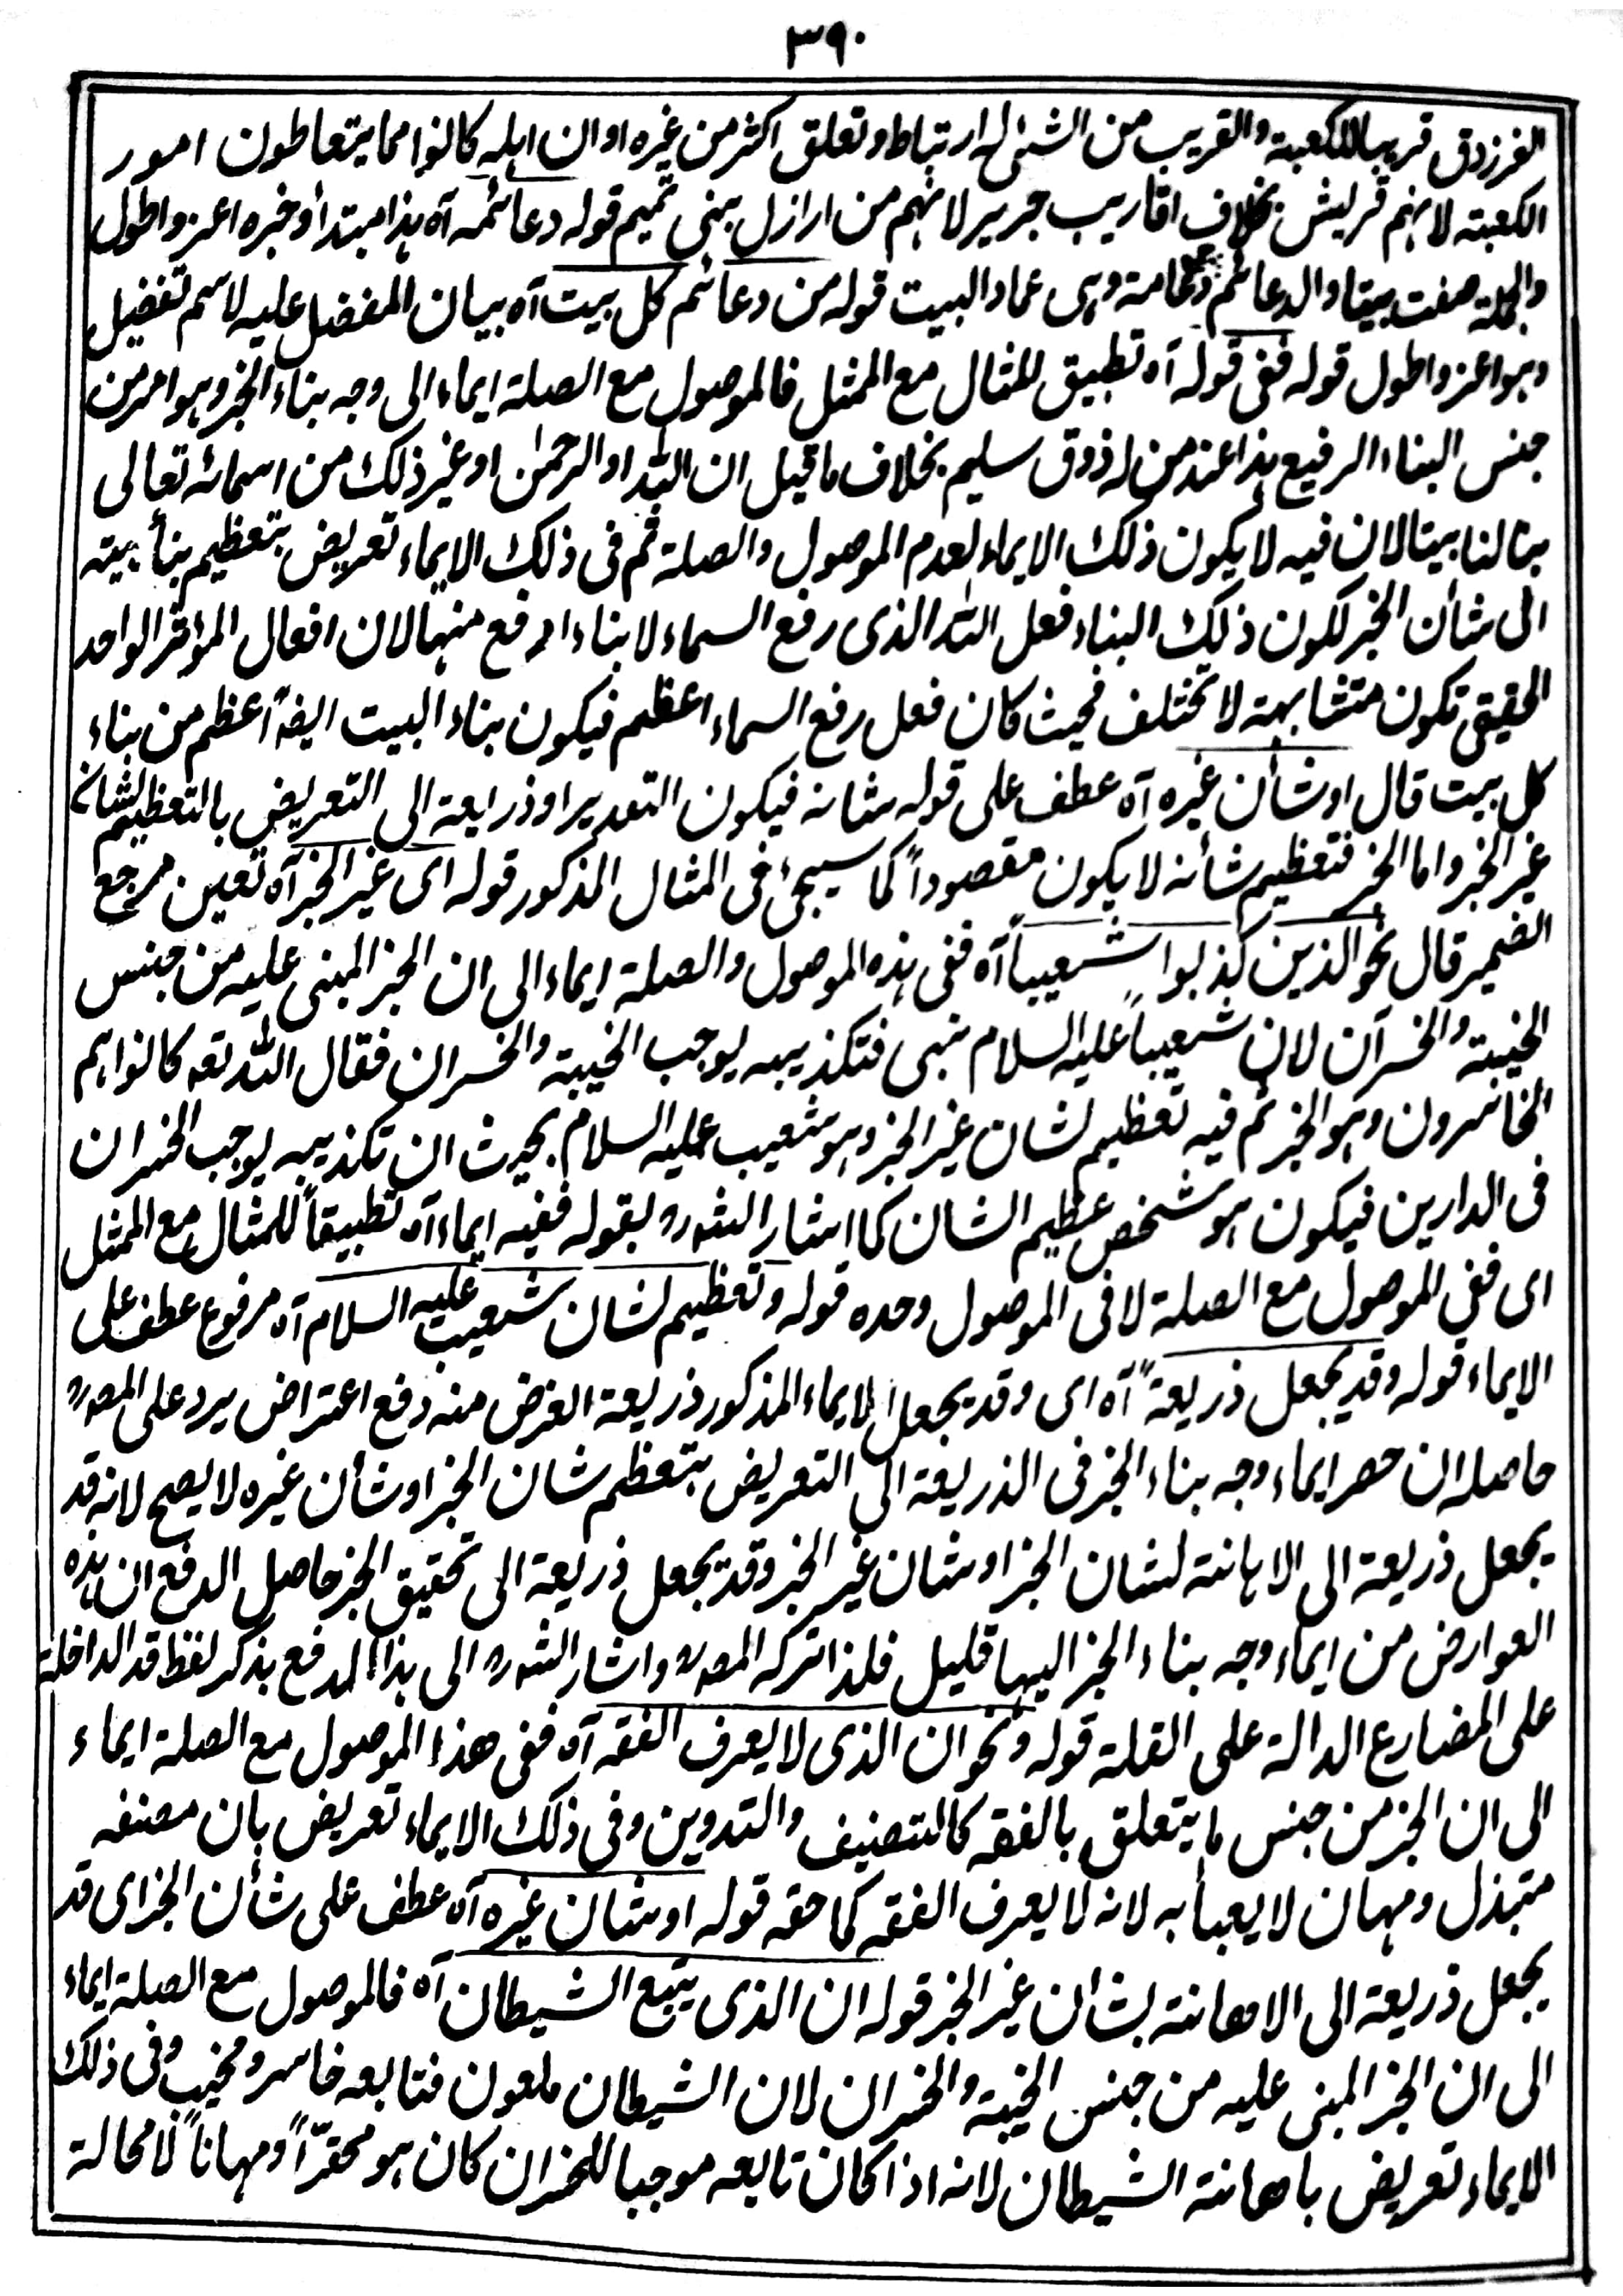 ٣٩٠
الفرزدق قريبا للكعبة والقريب من الشئ له ارتباط وتعلق اكثر من غيره او ان اهله كانوا مما يتعاطون امور
الكعبة لانهم قريش بخلاف اقاريب جرير لانهم من ارازل بنى تميم قوله دعائمه آه هذا مبتدأ وخبره اعز واطول
والجملة صفت بيتا والدعائم دعامة وهى عماد البيت قوله من دعائم كل بيت آه بيان المفضل عليه لاسم تفضيل
وهو اعز واطول قوله ففى قوله آه تطبيق للمثال مع الممثل فالموصول مع الصلة ايماء الى وجه بناء الخبر وهو امر من
جنس البناء الرفيع هذا عند من له ذوق سليم بخلاف ما قيل ان الله او الرحمٰن او غير ذلك من اسمائه تعالى
بنا لنا بيتا لان فيه لا يكون ذلك الايماء لعدم الموصول والصلة ثم فى ذلك الايماء تعريض بتعظيم بنأ بيته
الى شأن الخبر لكون ذلك البناء فعل الله الذى رفع السماء لا بناء ارفع منها لان افعال المؤثر الواحد
الحقيقى تكون متشابهة لا تختلف فحيث كان فعل رفع السماء اعظم فيكون بناء البيت ايضاً اعظم من بناء
كل بيت قال او شأن غيره آه عطف على قوله شانه فيكون التقدير او ذرايعة الى التعريض بالتعظيم لشان
غير الخبر واما الخبر فتعظيم شأنه لا يكون مقصوداً كما سيجئ فى المثال المذكور قوله اى غير الخبر آه تعين مرجع
الضمير قال نحو الذين كذبوا شعيباً آه ففى هذه الموصول والصلة ايماء الى ان الخبر المبنى عليه من جنس
الخيبة والخسرآن لان شعيباً عليه السلام نبى فتكذيبه يوجب الخيبة والخسران فقال الله تعه كانوا هم
الخاسرون وهو الخبر ثم فيه تعظيم لشان غير الخبر وهو شعيب عليه السلام بحيث ان تكذيبه يوجب الخسران
فى الدارين فيكون هو شخص عظيم الشان كما اشار الشورح بقوله ففيه ايماء آه تطبيقاً للمثال مع الممثل
اى ففى الموصول مع الصلة لا فى الموصول وحده قوله وتعظيم لشان شعيب عليه السلام آه مرفوع عطف على
الايماء قوله وقد يجعل ذريعة آه اى وقد يجعل الايماء المذكور ذريعة الغرض منه دفع اعتراض يرد على المصرح
حاصله ان حصر ايماء وجه بناء الخبر فى الذريعة الى التعريض بتعظم شان الخبر او شأن غيره لا يصح لانه قد
يجعل ذريعة الى الاهانة لشان الخبر او شان غير الخبر وقد يجعل ذريعة الى تحقيق الخبر حاصل الدفع ان هذه
العوارض من ايماء وجه بناء الخبر اليها قليل فلذا تركه المصرح واشار الشورح الى هذا الدفع بذكر لفظ قد الداخلة
على المضارع الدالة على القلة قوله ونحو ان الذى لا يعرف الفقه آه ففى هذا الموصول مع الصلة ايماء
الى ان الخبر من جنس ما يتعلق بالفقه كالتصنيف والتدوين وفى ذلك الايماء تعريض بان مصنفه
متبذل ومهان لا يعبأ به لانه لا يعرف الفقه كما حقه قوله او شان غيره آه عطف على شأن الخبر اى قد
يجعل ذريعة الى الاهانة بشان غير الخبر قوله ان الذى يتبع الشيطان آه فالموصول مع الصلة ايماء
الى ان الخبر المبنى عليه من جنس الخيبة والخسران لان الشيطان ملعون فتابعه خاسر ومخيب وفى ذلك
الايماء تعريض باهانة الشيطان لانه اذا كان تابعه موجبا للخسران كان هو محقرّاً ومهاناً لا محالة